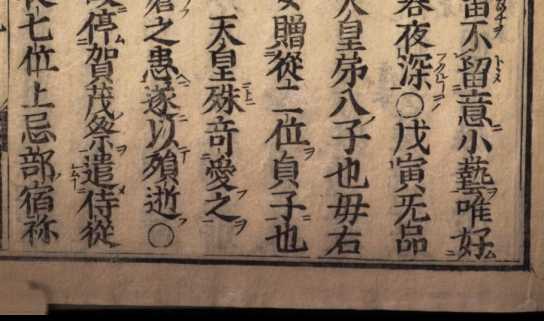 不留意小藝唯好
夜深○戊寅无品
天皇弟八子也母右
贈從二位貞子也
天皇殊奇愛之
之患遂以殞逝○
停賀茂祭遣侍從
七位上忌部宿祢